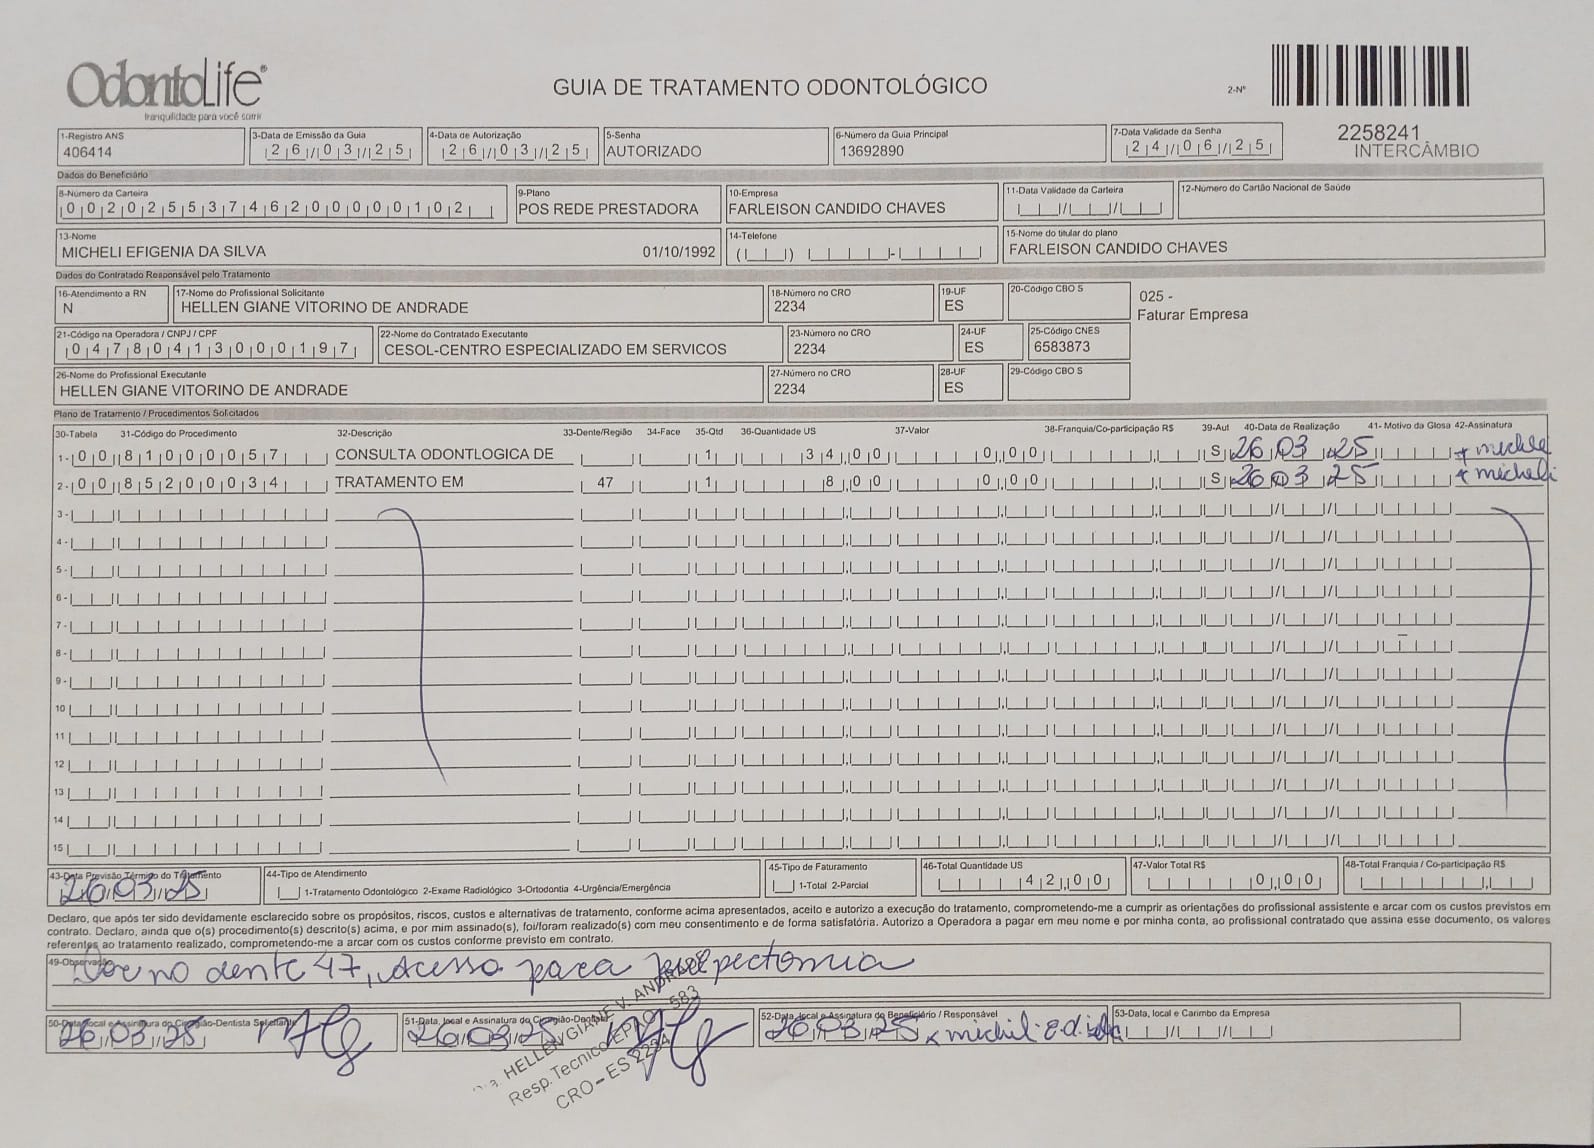 OdontoLife®
tranquilidade para você sorrir
GUIA DE TRATAMENTO ODONTOLÓGICO
2-Nº
2258241
INTERCÂMBIO
1-Registro ANS 3-Data de Emissão da Guia 4-Data de Autorização 5-Senha 6-Número da Guia Principal 7-Data Validade da Senha
406414 26/03/25 26/03/25 AUTORIZADO 13692890 24/06/25
Dados do Beneficiário
8-Número da Carteira 9-Plano 10-Empresa 11-Data Validade da Carteira 12-Número do Cartão Nacional de Saúde
00202553746200000102 POS REDE PRESTADORA FARLEISON CANDIDO CHAVES
13-Nome 14-Telefone 15-Nome do titular do plano
MICHELI EFIGENIA DA SILVA 01/10/1992 FARLEISON CANDIDO CHAVES
Dados do Contratado Responsável pelo Tratamento
16-Atendimento a RN 17-Nome do Profissional Solicitante 18-Número no CRO 19-UF 20-Código CBO S
N HELLEN GIANE VITORINO DE ANDRADE 2234 ES
025 -
Faturar Empresa
21-Código na Operadora / CNPJ / CPF 22-Nome do Contratado Executante 23-Número no CRO 24-UF 25-Código CNES
04780413000197 CESOL-CENTRO ESPECIALIZADO EM SERVICOS 2234 ES 6583873
26-Nome do Profissional Executante 27-Número no CRO 28-UF 29-Código CBO S
HELLEN GIANE VITORINO DE ANDRADE 2234 ES
Plano de Tratamento / Procedimentos Solicitados
30-Tabela 31-Código do Procedimento 32-Descrição 33-Dente/Região 34-Face 35-Qtd 36-Quantidade US 37-Valor 38-Franquia/Co-participação R$ 39-Aut 40-Data de Realização 41- Motivo da Glosa 42-Assinatura
1- 00 81000057 CONSULTA ODONTLOGICA DE 1 34,00 0,00 S 26 03 25 x micheli
2- 00 85200034 TRATAMENTO EM 47 1 8,00 0,00 S 26 03 25 x micheli
3-
4-
5-
6-
7-
8-
9-
10
11
12
13
14
15
43-Data Previsão Término do Tratamento 44-Tipo de Atendimento 45-Tipo de Faturamento 46-Total Quantidade US 47-Valor Total R$ 48-Total Franquia / Co-participação R$
26/03/25 1-Tratamento Odontológico 2-Exame Radiológico 3-Ortodontia 4-Urgência/Emergência 1-Total 2-Parcial 42,00 0,00
Declaro, que após ter sido devidamente esclarecido sobre os propósitos, riscos, custos e alternativas de tratamento, conforme acima apresentados, aceito e autorizo a execução do tratamento, comprometendo-me a cumprir as orientações do profissional assistente e arcar com os custos previstos em
contrato. Declaro, ainda que o(s) procedimento(s) descrito(s) acima, e por mim assinado(s), foi/foram realizado(s) com meu consentimento e de forma satisfatória. Autorizo a Operadora a pagar em meu nome e por minha conta, ao profissional contratado que assina esse documento, os valores
referentes ao tratamento realizado, comprometendo-me a arcar com os custos conforme previsto em contrato.
49-Observação
Dor no dente 47, Acesso para pulpectomia
50-Data, local e Assinatura do Cirurgião-Dentista Solicitante 51-Data, local e Assinatura do Cirurgião-Dentista 52-Data, local e Assinatura do Beneficiário / Responsável 53-Data, local e Carimbo da Empresa
26/03/25 26/03/25 26/03/25 x micheli E. d.
HELLEN GIANE V. ANDRADE
Resp. Tecnico EPAO 583
CRO-ES 2234